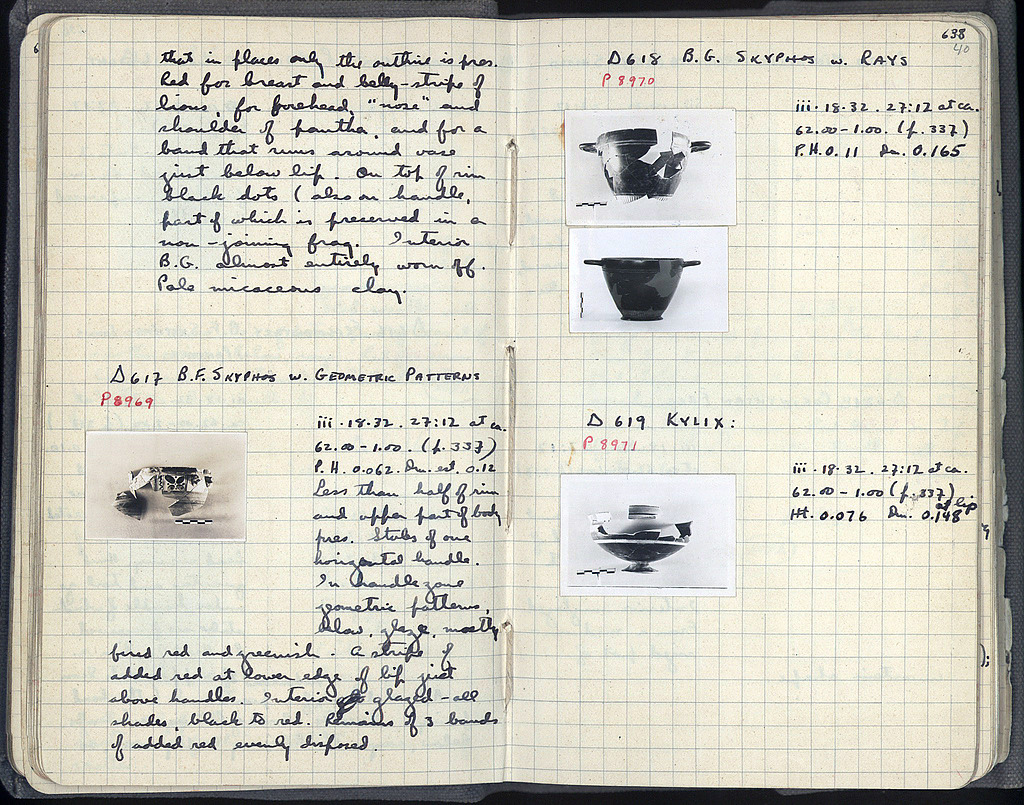 that in places only the outline is pres.
Red for breast and belly-stripe of
lions, for forehead, "nose" and
shoulder of panther, and for a
band that runs around vase
just below lip. On top of rim
black dots (also on handle,
part of which is preserved in a
non-joining frag. Interior
B.G. almost entirely worn off.
Pale micaceous clay.
Δ617 B.F. SKYPHOS W. GEOMETRIC PATTERNS
P 8969
iii·18·32. 27:12 at ca.
62.00-1.00. (p.337)
P.H. 0.062. Dm. est. 0.12
Less than half of rim
and upper part of body
pres. Stubs of one
horizontal handle.
In handle zone
geometric patterns,
below, glaze, mostly
fired red and greenish. A stripe of
added red at lower edge of lip just
above handles. Interior glazed - all
shades, black to red. Remains of 3 bands
of added red evenly disposed.
638
40
Δ618 B.G. SKYPHOS W. RAYS
P 8970
iii·18·32. 27:12 at ca.
62.00-1.00. (p.337)
P.H. 0.11 Dm. 0.165
Δ 619 KYLIX:
P 8971
iii·18·32. 27:12 at ca.
62.00-1.00 (p.337)
at lip
Ht. 0.076 Dm. 0.148